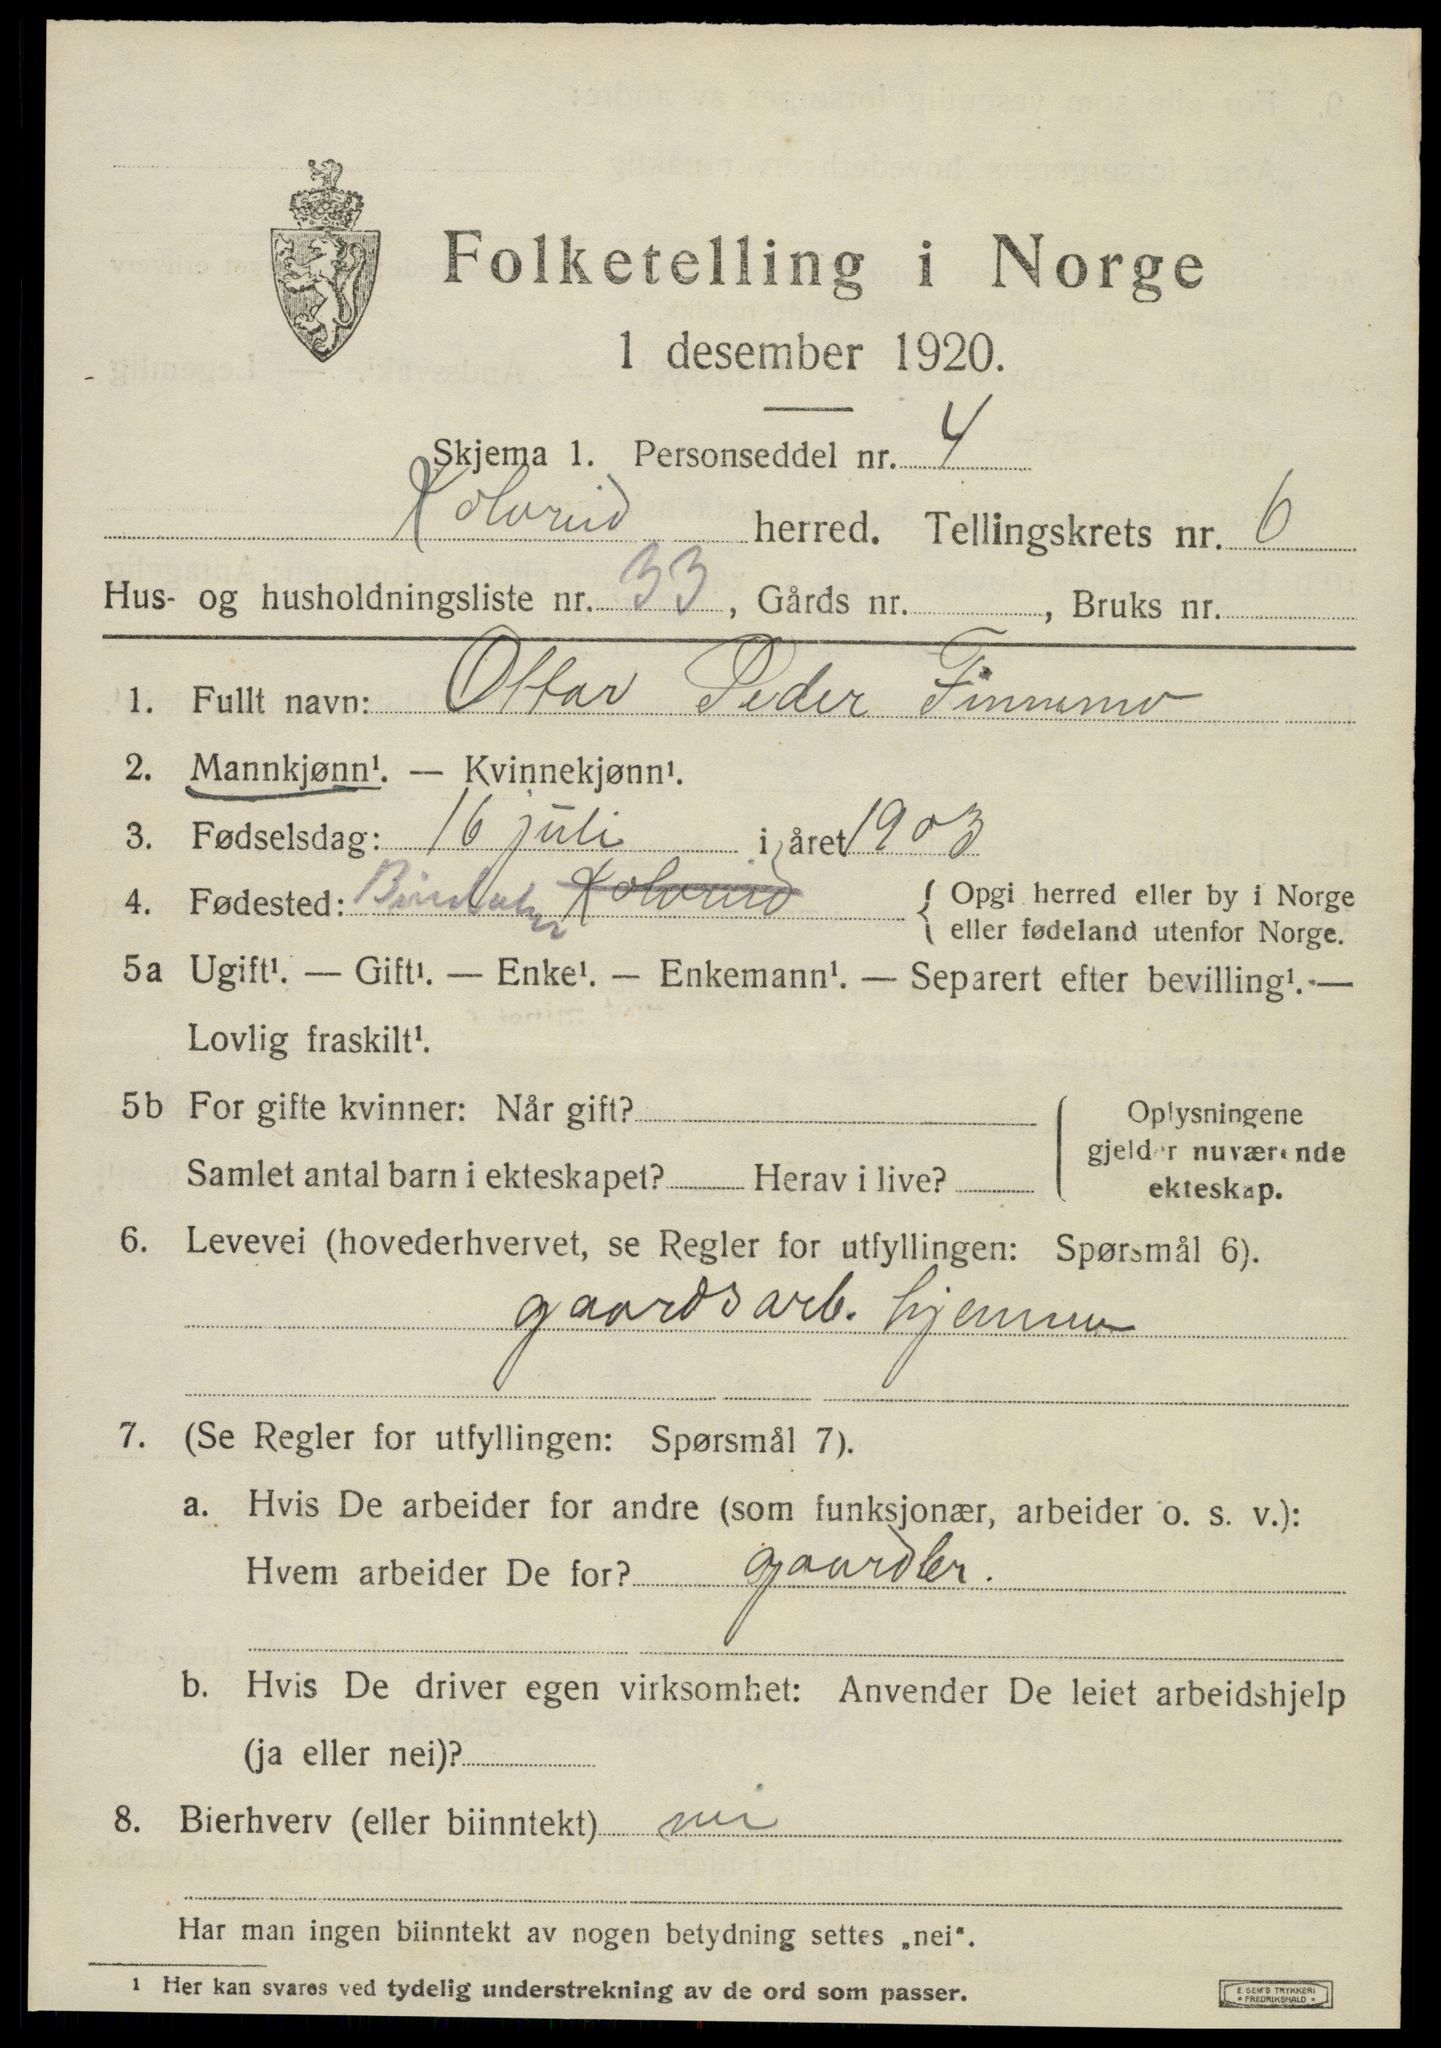 Folketelling i Norge
1 desember 1920.
Skjema 1. Personseddel nr. 4
Kolvereid herred. Tellingskrets nr. 6
Hus- og husholdningsliste nr. 33, Gårds nr. , Bruks nr.
1. Fullt navn: Ottar Peder Finnemo
2. Mannkjønn¹. — Kvinnekjønn¹.
3. Fødselsdag: 16 juli i året 1903
4. Fødested: Bindalen Kolvereid { Opgi herred eller by i Norge
eller fødeland utenfor Norge.
5a Ugift¹. — Gift¹. — Enke¹. — Enkemann¹. — Separert efter bevilling¹. —
Lovlig fraskilt¹.
5b For gifte kvinner: Når gift? Oplysningene
gjelder nuværende
Samlet antal barn i ekteskapet? Herav i live? ekteskap.
6. Levevei (hovederhvervet, se Regler for utfyllingen: Spørsmål 6).
gaardsarb. hjemme
7. (Se Regler for utfyllingen: Spørsmål 7).
a. Hvis De arbeider for andre (som funksjonær, arbeider o. s. v.):
Hvem arbeider De for? gaardbr.
b. Hvis De driver egen virksomhet: Anvender De leiet arbeidshjelp
(ja eller nei)?
8. Bierhverv (eller biinntekt) nei
Har man ingen biinntekt av nogen betydning settes „nei“.
1 Her kan svares ved tydelig understrekning av de ord som passer.
E. SEM'S TRYKKERI
• FREDRIKSHALD •